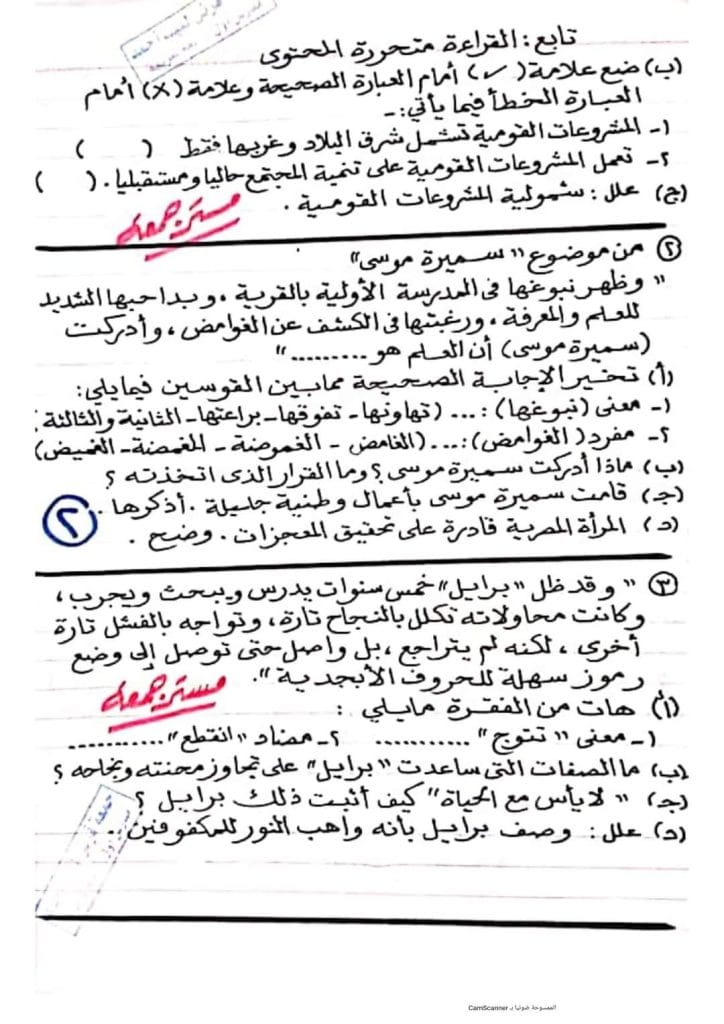 تابع: القراءة متحررة المحتوى
(ب) ضع علامة (✓) أمام العبارة الصحيحة وعلامة (X) أمام
العبارة الخطأ فيما يأتي:-
١- المشروعات القومية تشمل شرق البلاد وغربها فقط ( )
٢- تعمل المشروعات القومية على تنمية المجتمع حاليا ومستقبليا. ( )
(ج) علل: شمولية المشروعات القومية.
مستر جمعه
② من موضوع "سميرة موسى"
" وظهر نبوغها فى المدرسة الأولية بالقرية، وبدا حبها الشديد
للعلم والمعرفة، ورغبتها فى الكشف عن الغوامض، وأدركت
(سميرة موسى) أن العلم هو ......... "
(أ) تخير الإجابة الصحيحة مما بين القوسين فيما يلي:
١- معنى (نبوغها): ... (تهاونها - تفوقها - براعتها - الثانية والثالثة)
٢- مفرد (الغوامض): ... (الغامض - الغموضة - الغمضة - الغميض)
(ب) ماذا أدركت سميرة موسى؟ وما القرار الذى اتخذته؟
(جـ) قامت سميرة موسى بأعمال وطنية جليلة. أذكرها.
(د) المرأة المصرية قادرة على تحقيق المعجزات. وضح.
٢
③ " وقد ظل "برايل" خمس سنوات يدرس ويبحث ويجرب،
وكانت محاولاته تكلل بالنجاح تارة، وتواجه بالفشل تارة
أخرى، لكنه لم يتراجع، بل واصل حتى توصل إلى وضع
رموز سهلة للحروف الأبجدية".
مستر جمعه
(أ) هات من الفقرة مايلي:
١- معنى "تتوج" ........... ٢- مضاد "انقطع" ...........
(ب) ما الصفات التى ساعدت "برايل" على تجاوز محنته ونجاحه؟
(جـ) " لا يأس مع الحياة" كيف أثبت ذلك برايل؟
(د) علل: وصف برايل بأنه واهب النور للمكفوفين.
الممسوحة ضوئيا بـ CamScanner